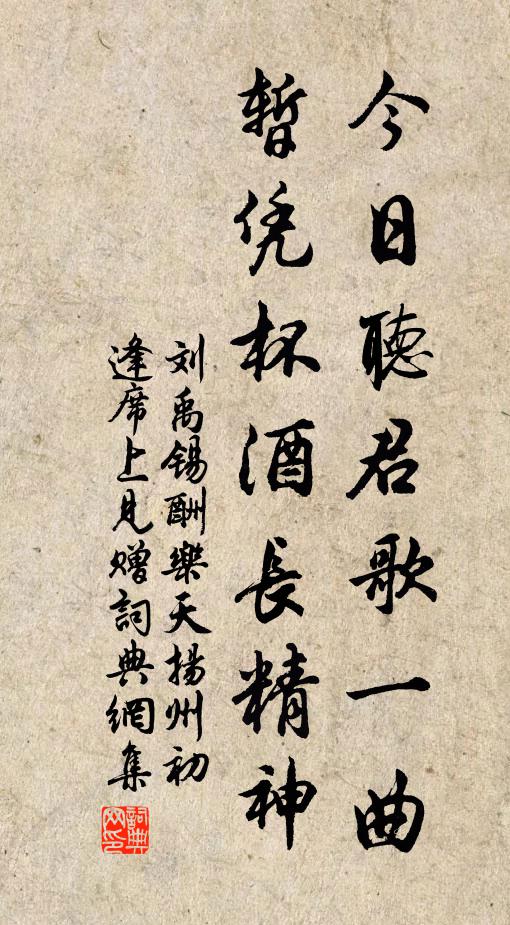 今日聽君歌一曲
暫凭杯酒長精神
刘禹锡酬樂天揚州初
逢席上見贈詞典網集
詞典网印